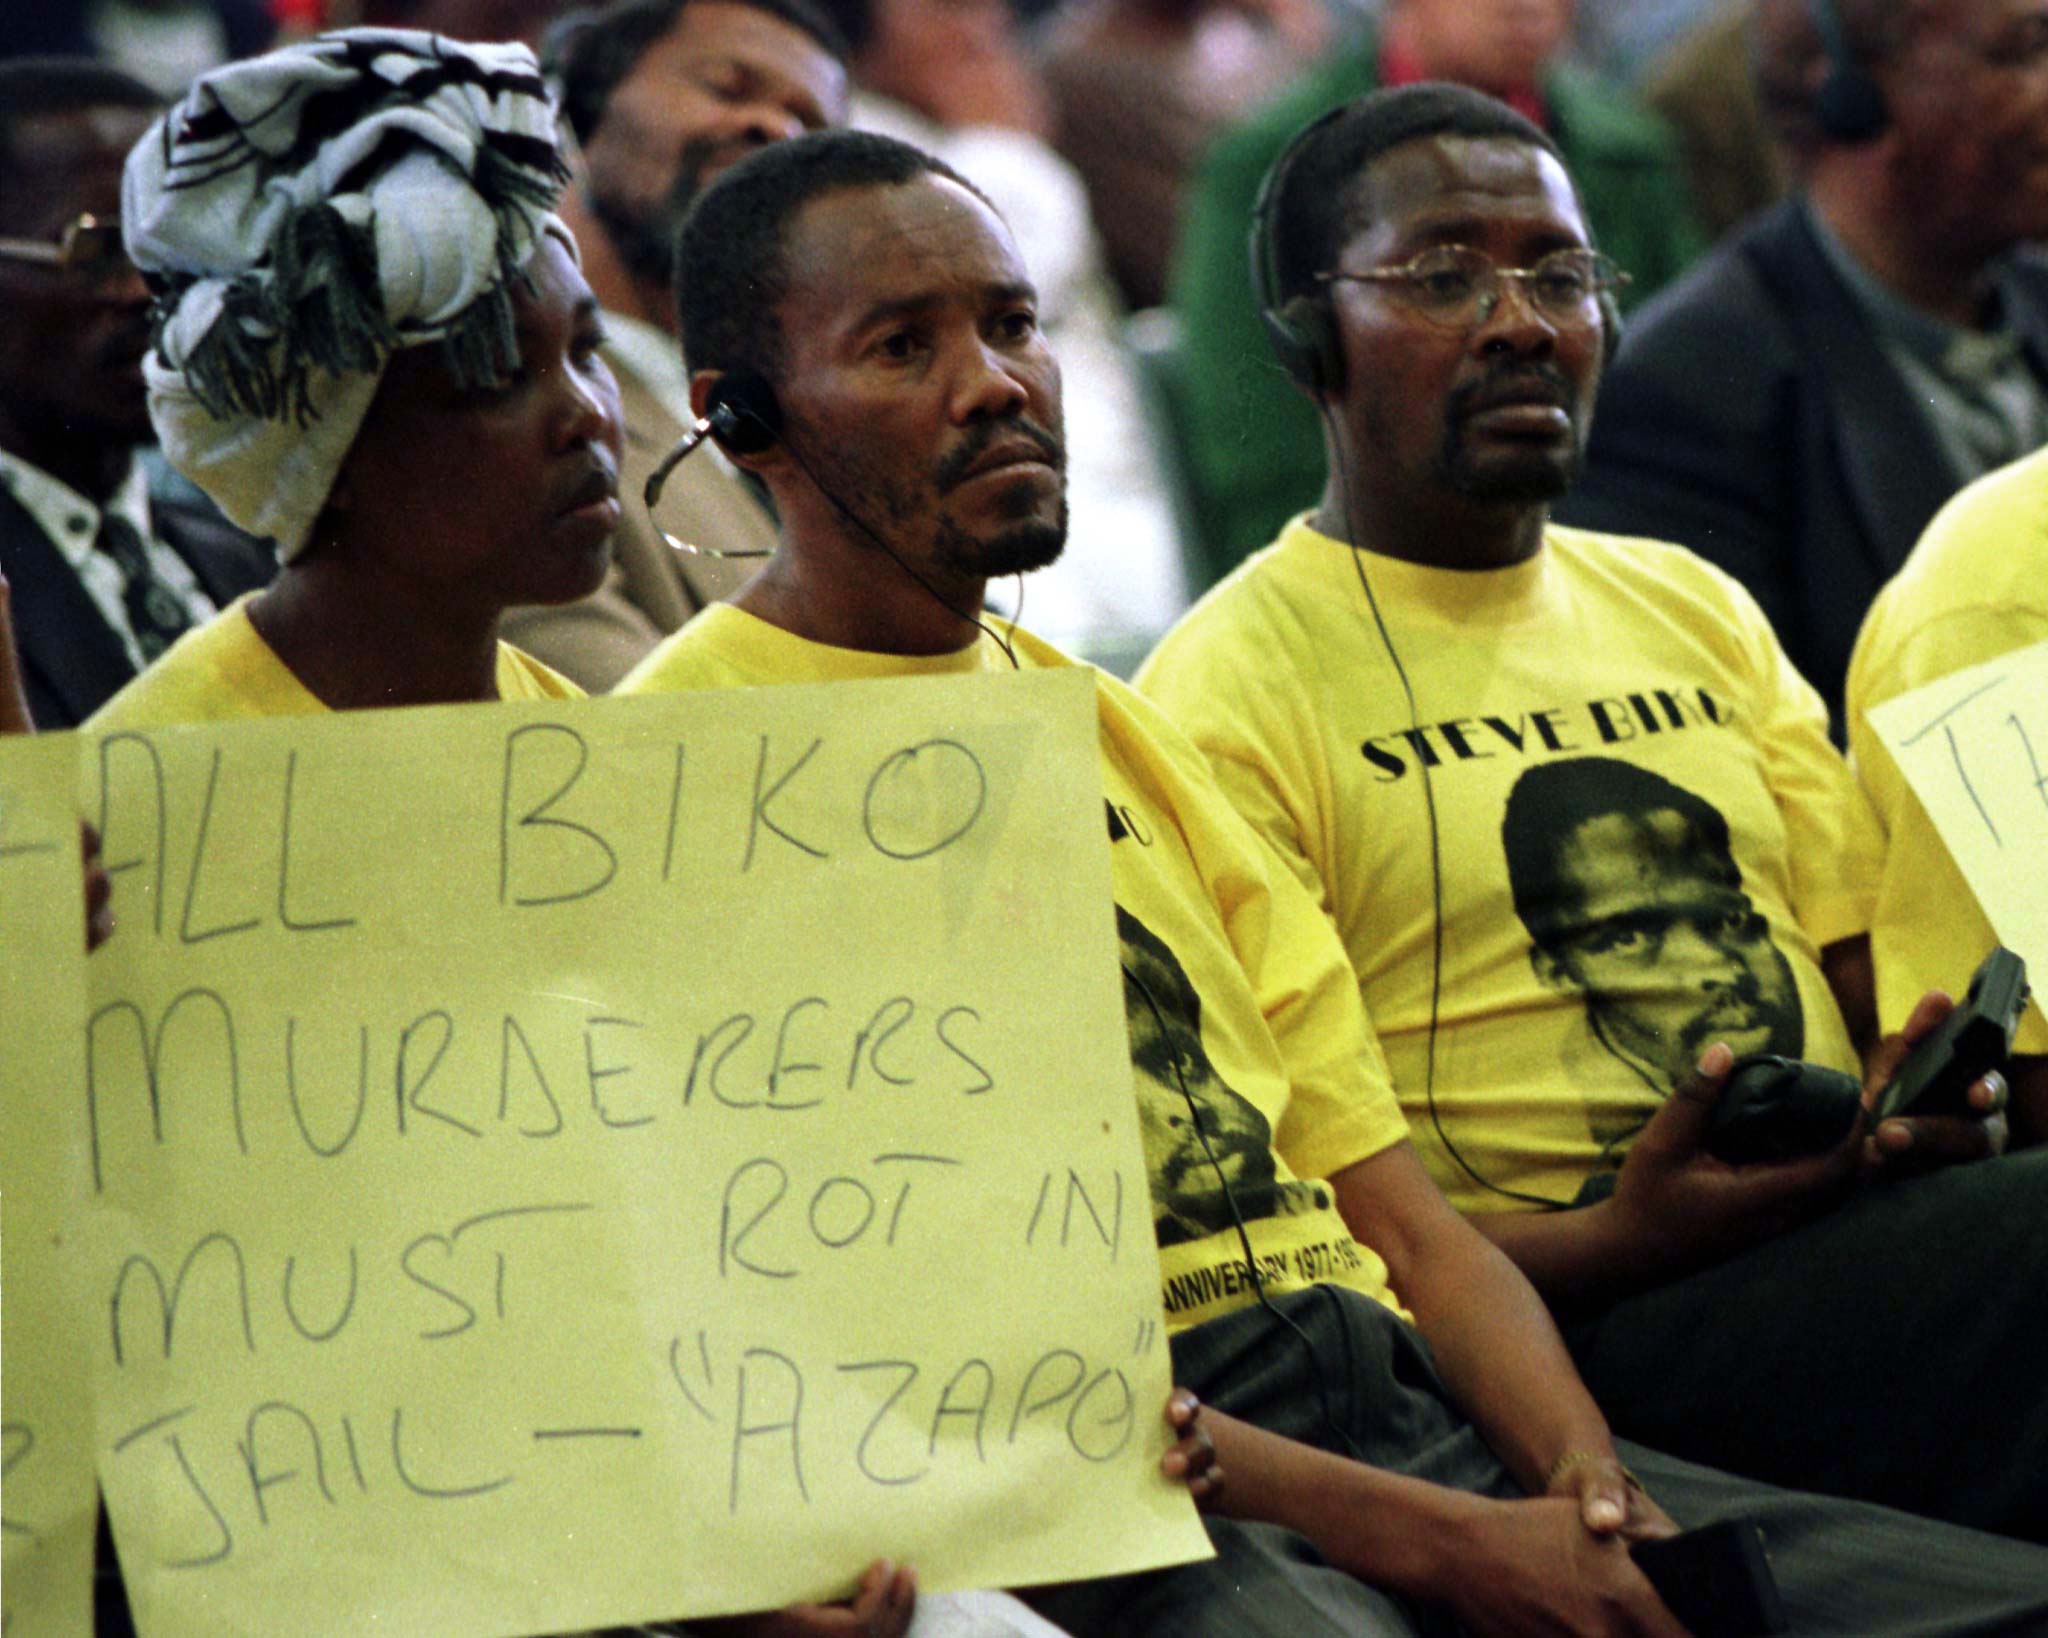 ALL BIKO
MURDERERS
MUST ROT IN
JAIL — "AZAPO"
STEVE BIKO
ANNIVERSARY 1977-19